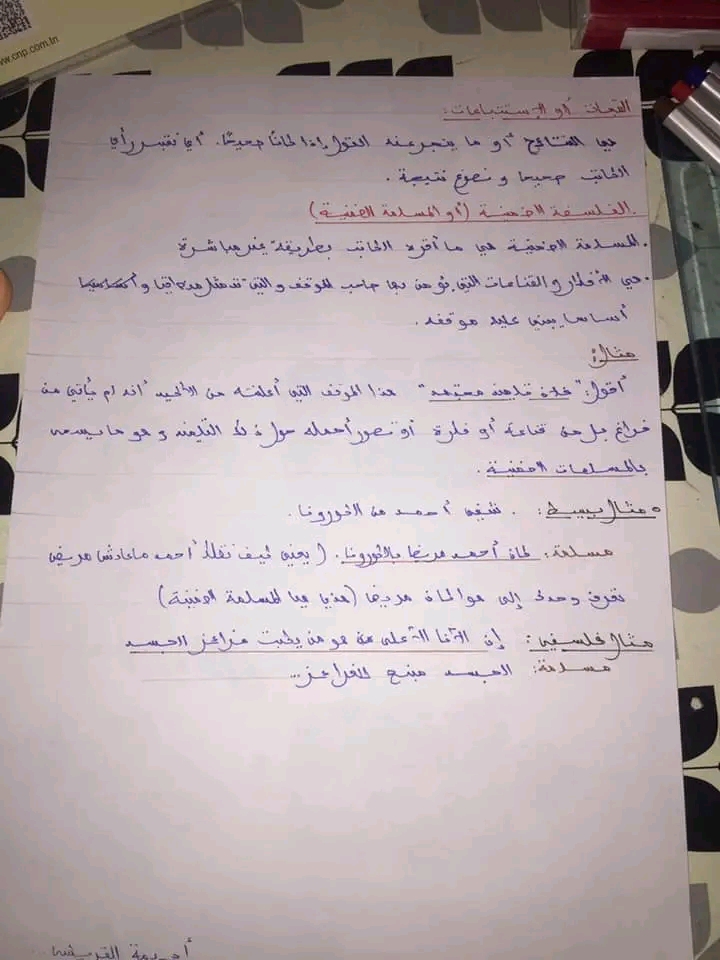 www.cnp.com.tn
التبعات أو الإستتباعات:
هي النتائج أو ما ينجر عنه القول إذا كان صحيحًا. أي نعتبر رأي
الكاتب صحيحا و نصوغ نتيجة.
الفلسفة الضمنية (أو المسلمة الضمنية)
. المسلمة الضمنية هي ما أقره الكاتب بطريقة غير مباشرة
. هي الأفكار و القناعات التي يؤمن بها صاحب الموقف و التي تمثل و
أساسا يبني عليه موقفه.
مثال:
أقول: "غادة تلميذة مجتهدة" هذا الموقف التي أعلنته من الأكيد أنه لم يأتي من
فراغ بل من قناعة أو فكرة أو تصور أحمله حول التلميذة و هو ما يسمى
بالمسلمات الضمنية.
مثال بسيط: . شفي أحمد من الكورونا.
مسلمة: كان أحمد مريضا بالكورونا. (يعني كيف نقلك أحمد ماعادش مريض
تعرف وحدك إلى هو الكان مريضا (هذي هيا المسلمة الضمنية)
مثال فلسفي: إن الأنا الأعلى من هو من يكبت غرائز الجسد
مسلمة: الجسد منبع الغرائز...